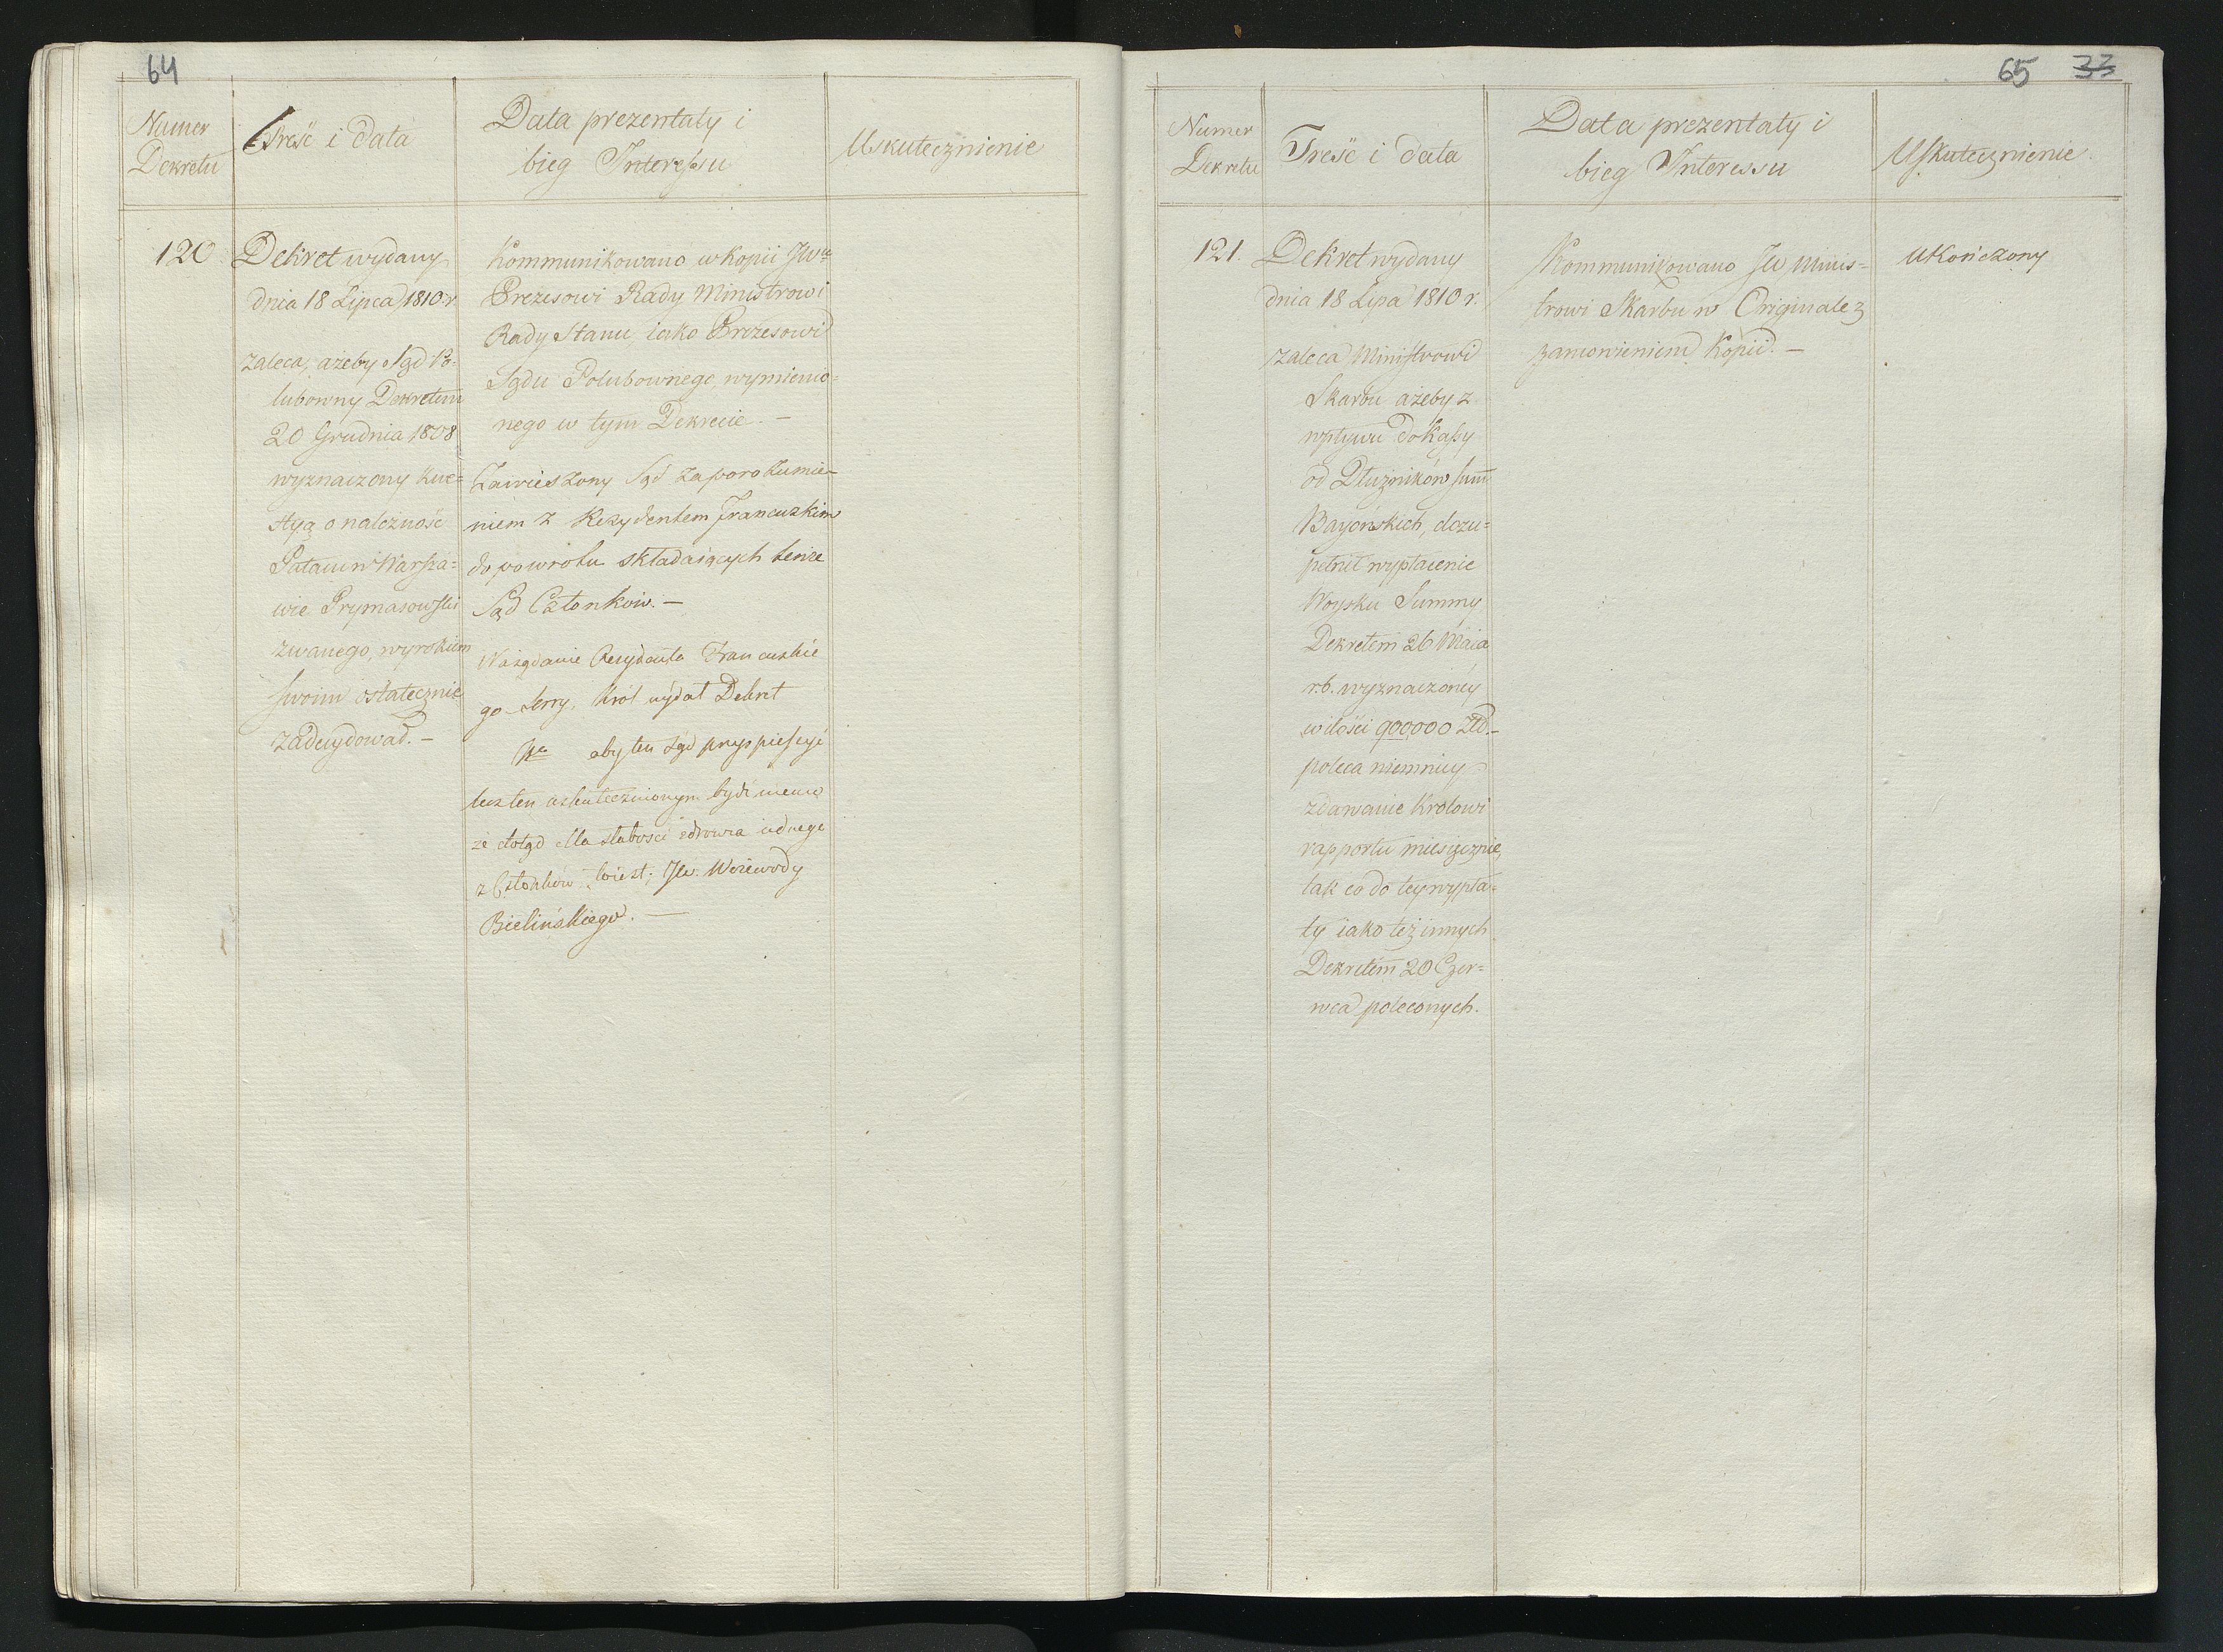 64
Numer
Dekretu
Treść i data
Data prezentaty i
bieg Interessu
Uskutecznienie
120
Dekret wydany
dnia 18 Lipca 1810 r
zaleca, ażeby Sąd Po-
lubowny Dekretem
20 Grudnia 1808
wyznaczony kwe=
styą o należność
Pałacu w Warsza=
wie Prymasowski
zwanego, wyrokiem
swoim ostatecznie
zadecydował. —
Kommunikowano w kopii JWu
Prezesowi Rady Ministrowi
Rady Stanu, iako Prezesowi
Sądu Polubownego, wymienio=
nego w tym Dekrecie. —
Zawieszony Sąd za porozumie-
niem z Rezydentem Francuzkim
do powrotu składaiących tenże
Sąd Członków. —
Na żądanie Rezydenta Francuskie
go Serry, Król wydał Dekret
aby ten Sąd przyspieszyć
lecz ten uskutecznionym bydź
że dotąd dla słabości zdrowia iednego
z Członków to iest; JW. Woiewody
Bielińskiego. —
65 33
Numer
Dekretu
Treść i data
Data prezentaty i
bieg Interessu
Uskutecznienie
121.
Dekret wydany
dnia 18 Lipa 1810 r.
zaleca Ministrowi
Skarbu ażeby z
wpływu do Kassy
od Dłużników summ
Bayońskich, dozu=
pełnił wypłacenie
Woysku Summy
Dekretem 26 Maia
r.b. wyznaczoney
w ilości 900000 Złł. —
poleca niemniey
zdawanie Królowi
rapportu miesięcznie,
tak co do tey wypła=
ty iako też innych
Dekretem 20 Czer=
wca poleconych.
Kommunikowano JW Minis=
trowi Skarbu w Originale z
zamowieniem Kopii. —
Ukończony